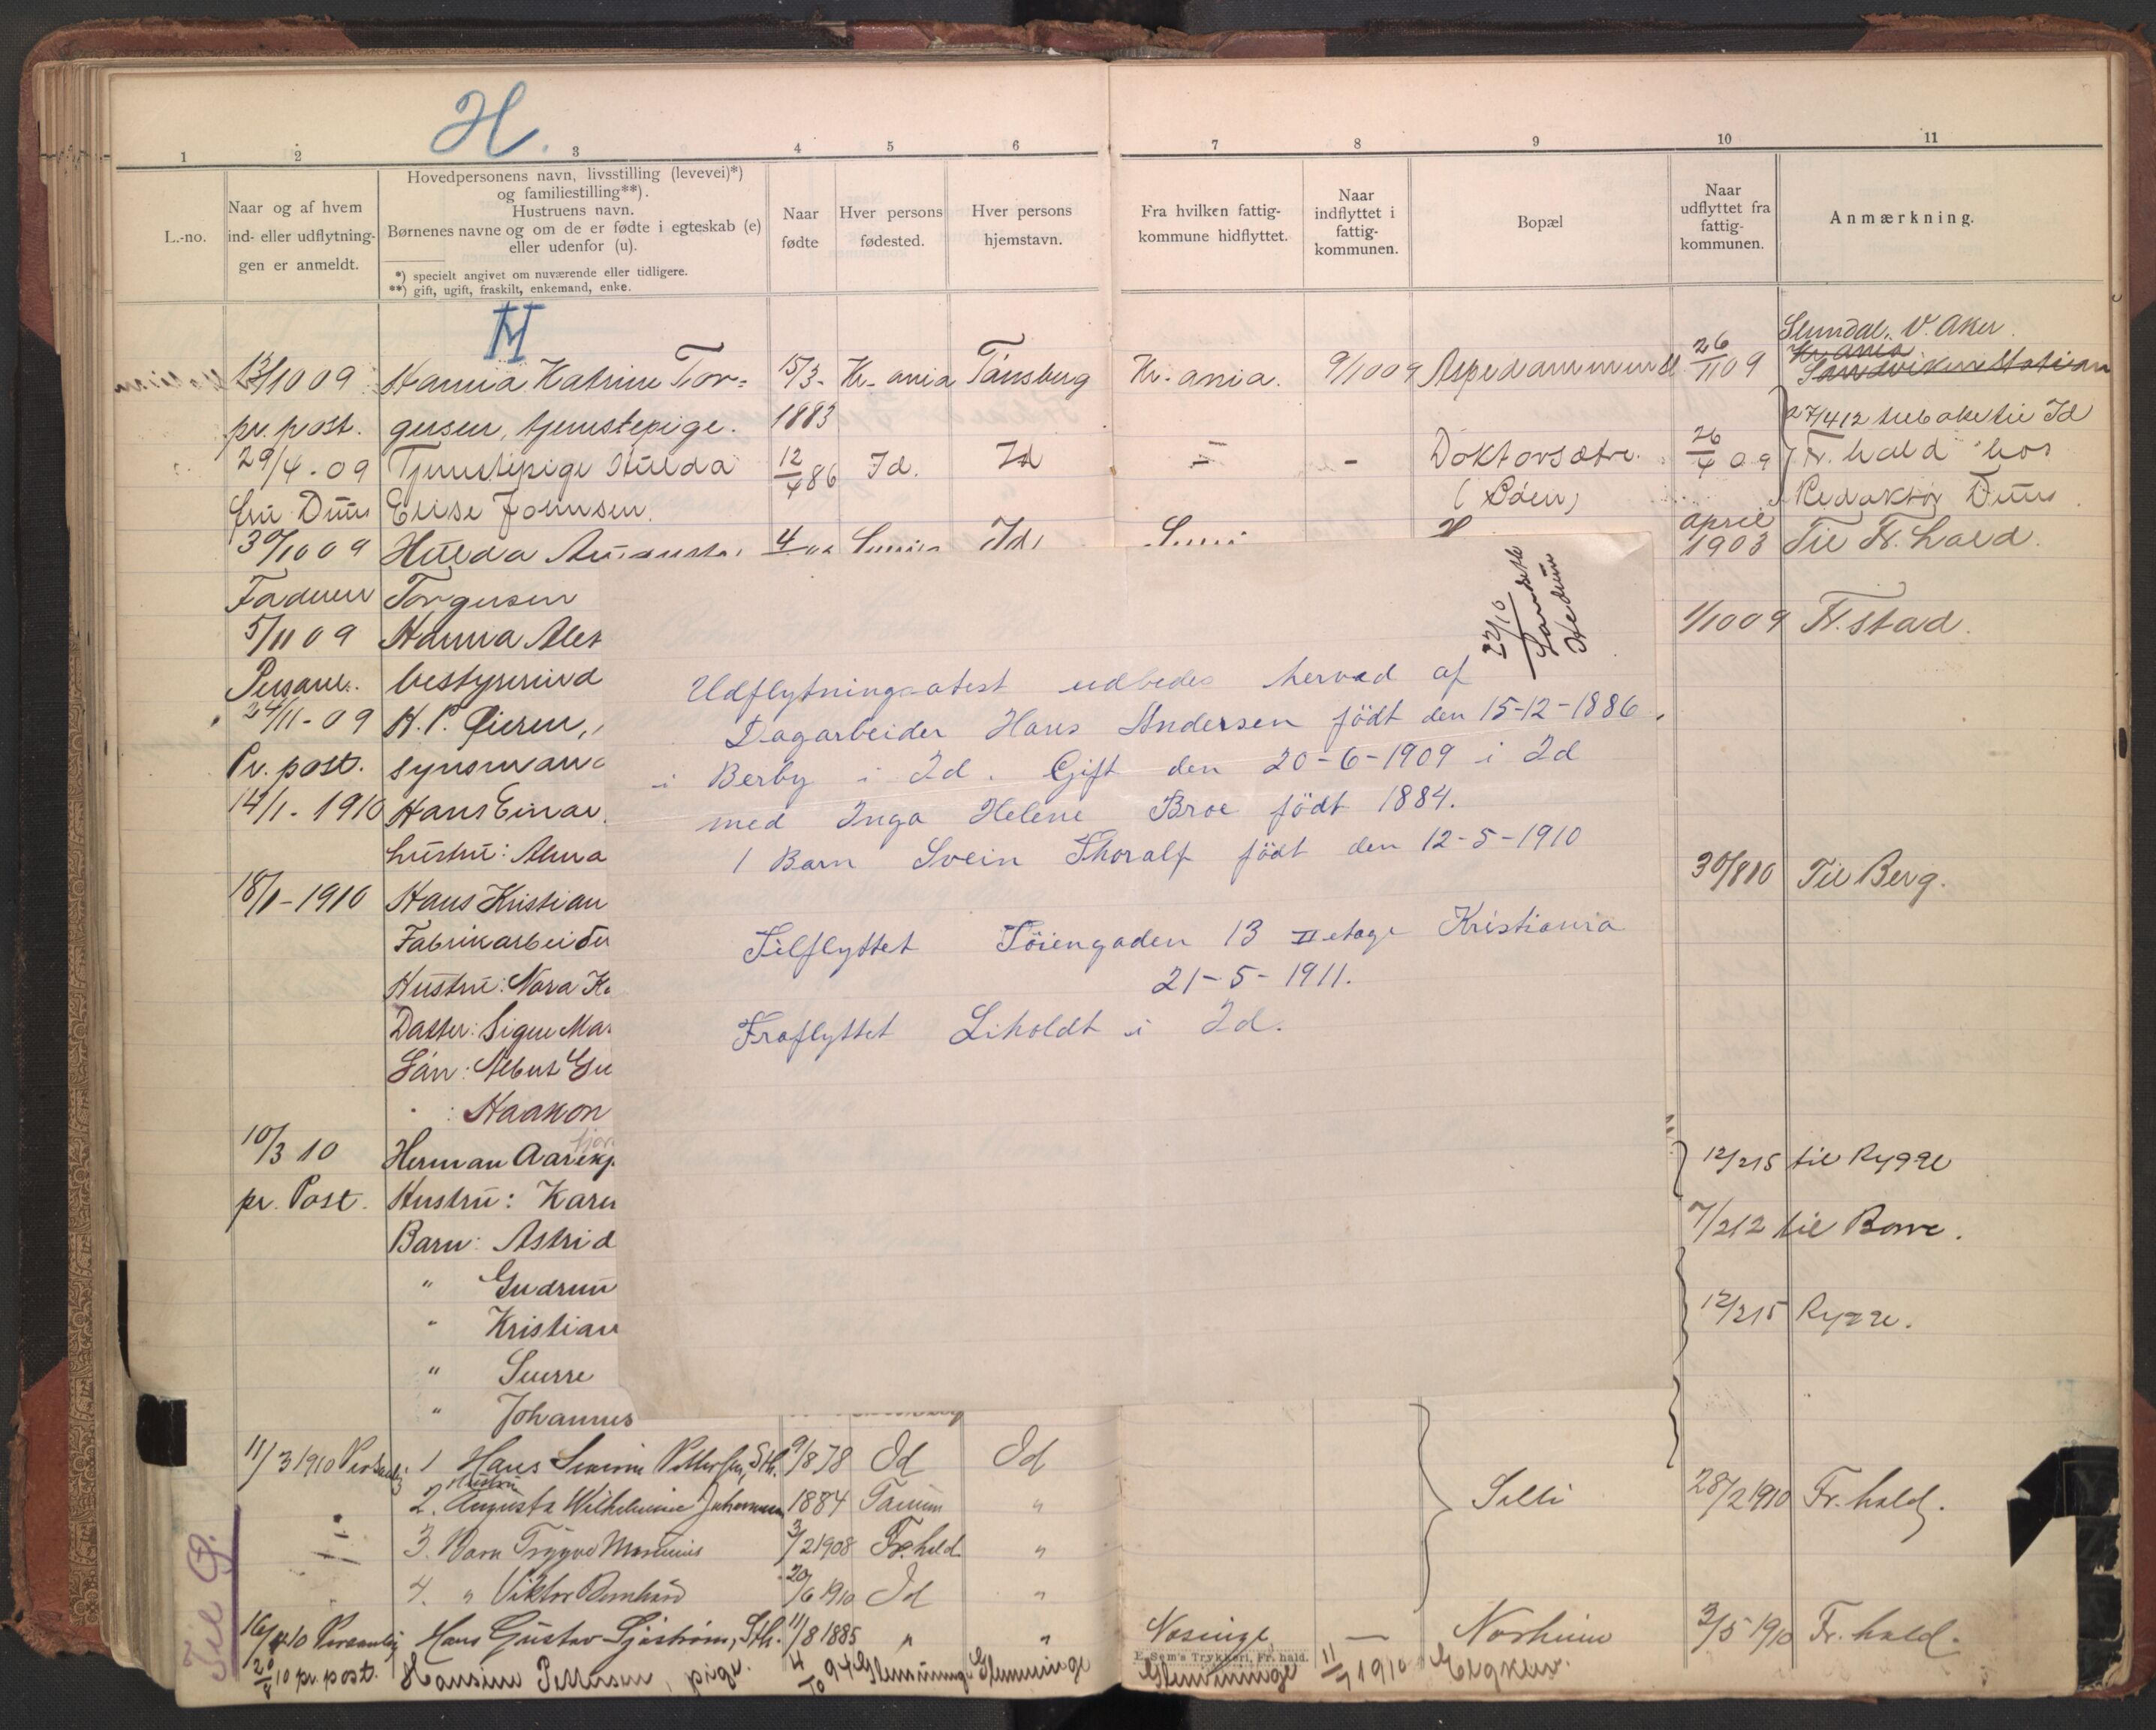 H.
1 2 3 4 5 6 7 8 9 10 11
L.-no.
Naar og af hvem
ind- eller udflytnin-
gen er anmeldt.
Hovedpersonens navn, livsstilling (levevei)*)
og familiestilling**).
Hustruens navn.
Børnenes navne og om de er fødte i egteskab (e)
eller udenfor (u).
*) specielt angivet om nuværende eller tidligere.
**) gift, ugift, fraskilt, enkemand, enke.
Naar
fødte
Hver persons
fødested.
Hver persons
hjemstavn.
Fra hvilken fattig-
kommune hidflyttet.
Naar
indflyttet i
fattig-
kommunen.
Bopæl
Naar
udflyttet fra
fattig-
kommunen.
Anmærkning.
H
V. Aker.
13/10 09 Hanna Katrine Tor- 15/3- Kr-ania Tønsberg Kr-ania. 9/10 09 Aspedammen 26/11 09 Kr.ania
Sandviken Station
pr. post. gersen, tjenstepige. 1883 27/4 12 tilbake til Id
29/4-09 Tjenstepige Hulda 12/4 86 Id. Id - - Doktorsætre. 26/4 09 Fr.hald hos
fru Duus Elise Johnsen. Redaktør Duus
30/10 09 Hulda Augusta 4 Id april 1903 Til Fr.hald.
Faderen Torgersen
5/11 09 Hanna 1/10 09 Fr.stad.
Personl. bestyrerind
24/11-09 H. P.
Pr. post. synsmand
14/1-1910 Hans Einar
hustru: Alma
18/1-1910 Hans Kristian 30/8 10 Til Berg.
Fabrikarbeider
Hustru: Nora
Datter: Signe
Søn: Albert
" : Haakon
10/3 10 Herman 12/2 15 til Rygge
pr. Post. Hustru: Karen 7/2 12 til Borre.
Barn: Astrid
" Gudrun
" Kristian 12/2 15 Rygge.
" Sverre
" Johannes
22/10
Udflytningsatest udbedes herved af
Dagarbeider Hans Andersen födt den 15-12-1886
i Berby i Id. Gift den 20-6-1909 i Id
med Inga Helene Broe födt 1884.
1 Barn Svein Thoralf födt den 12-5-1910
Tilflyttet Töiengaden 13 II etage Kristiania
21-5-1911.
Fraflyttet Liholdt i Id.
11/3 1910 Personlig 1 Hans Severin Pettersen, Sth. 9/8 78 Id Id
Hustru
2. Augusta Wilhelmine Johannessen 1884 Tanum " Silli 28/2 1910 Fr.hald.
3. Barn Trygve Marinius 3/2 1908 Fr.hald "
4. " Viktor Bernhard 20/6 1910 Id "
16/4 10 Personlig Hans Gustav Sjøstrøm, Sth. 11/8 1885 " " Nasinge — Norheim 3/5 1910 Fr.hald.
E. Sem's Trykkeri, Fr.hald.
20/8 10 pr. post. Hansine Pettersen, pige. 4/10 94 Glemminge Glemminge Glemminge 11/7 1910
Til G.